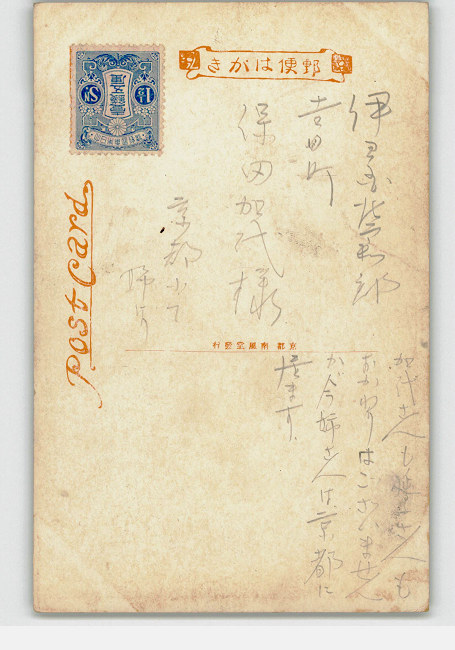 郵便はがき
伊
郡
吉田町
保田加代様
京都にて
姉より
Post Card
京都 南風堂発行
加代さんも さんも
おかわりはございません
か今姉さんは京都に
居ます、
1½ Sn
壱銭五厘